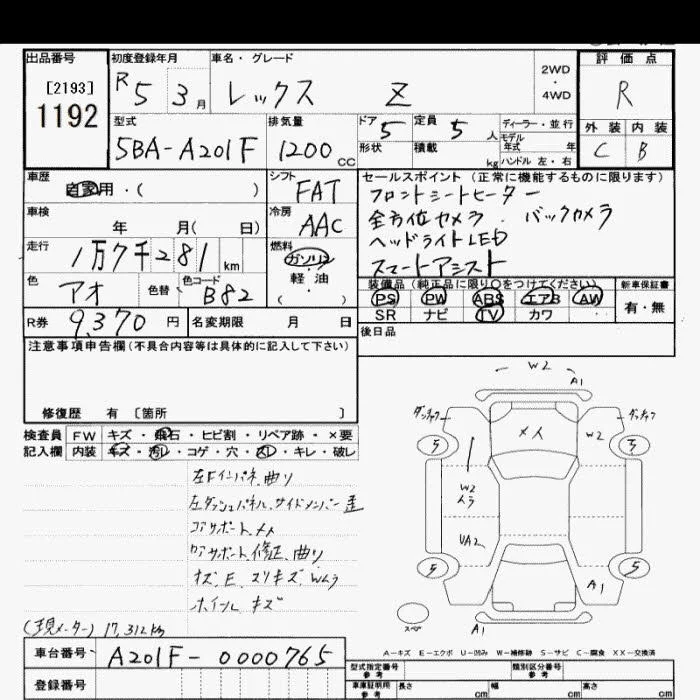 出品番号
[2193]
1192
初度登録年月
R5 3月
車名・グレード
レックス Z
2WD
・
4WD
評価点
R
型式
5BA-A201F
排気量
1200 CC
ドア 5
形状
定員 5 人
積載 kg
ディーラー・並行
モデル
年式 年
ハンドル 左・右
外装 内装
C B
車歴
自家用・( )
シフト
FAT
セールスポイント (正常に機能するものに限ります)
フロントシートヒーター
全方位カメラ . バックカメラ
ヘッドライトLED
スマートアシスト
車検
年 月( 日)
冷房
AAC
走行
1万7千281 km
燃料
ガソリン
軽・油
( )
色
アオ
色替
色コード
B82
装備品 (純正品に限り○をつけてください)
PS PW ABS エアB AW
SR ナビ TV カワ
新車保証書
有・無
R券 9,370 円
名変期限 月 日
後日品
注意事項申告欄(不具合内容等は具体的に記入して下さい)
修復歴 有 [箇所 ]
検査員
記入欄
FW キズ・飛石・ヒビ割・リペア跡・×要
内装 キズ・汚レ・コゲ・穴・スレ・キレ・破レ
左Fインパネ曲り
左ダッシュパネル、サイドメンバー歪
コアサポート〆メ
ロアサポート修正、曲り
キズ、E、スリキズ、Wムラ
ホイルキズ
(現メーター) 17,312km
W2
A1
メ人
W2
W2
ムラ
UA2
A1
A1
5
5
5
5
スペア
A-キズ E-エクボ U-凹み W-補修跡 S-サビ C-腐食 XX-交換済
車台番号 A201F-0000765
登録番号
型式指定番号
参考
類別区分番号
参考
車庫証明用
参考
長さ cm
幅 cm
高さ cm